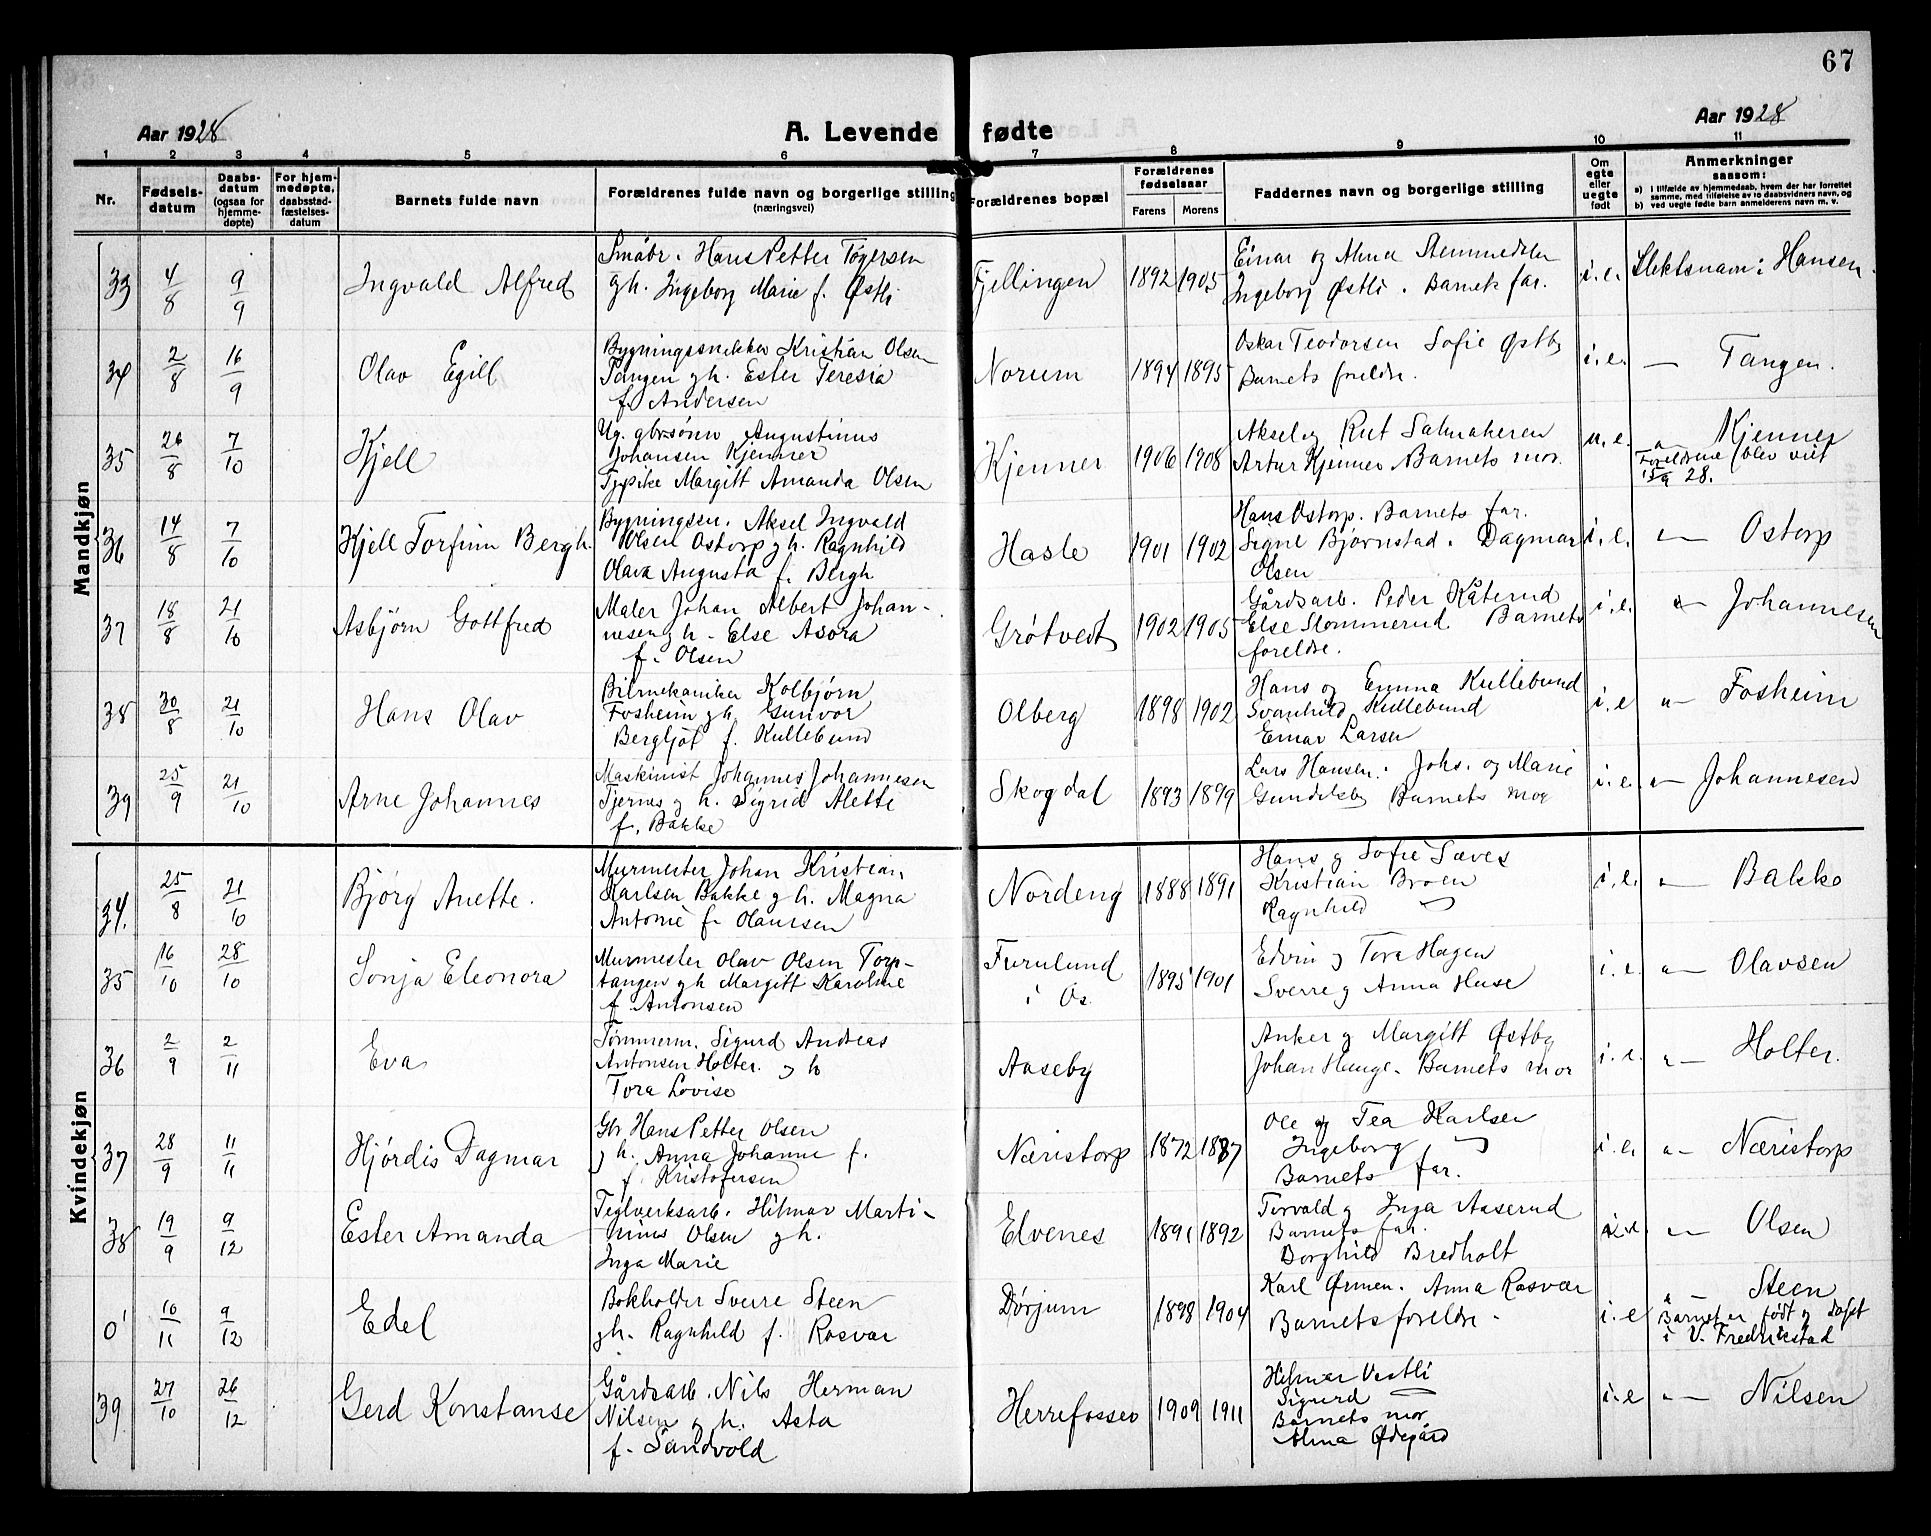 67
Aar 1928
A. Levende fødte
Aar 1928
1 2 3 4 5 6 7 8 9 10 11
Nr.
Fødsels-
datum
Daabs-
datum
(ogsaa for
hjemme-
døpte)
For hjem-
medøpte,
daabsstad-
fæstelses-
datum
Barnets fulde navn
Forældrenes fulde navn og borgerlige stilling
(næringsvei)
Forældrenes bopæl
Forældrenes
fødselsaar
Farens Morens
Faddernes navn og borgerlige stilling
Om
egte
eller
uegte
født
Anmerkninger
saasom:
a) i tilfælde av hjemmedaab, hvem der har forrettet
samme, med tilføielse av to daabsvidners navn, og
b) ved uegte fødte barn anmelderens navn m. v.
Mandkjøn
33 4/8 9/9 Ingvald Alfred
Småbr. Hans Petter Tøgersen
gh. Ingeborg Marie f. Østli
Fjellingen 1892 1905
Einar og Alma Stemmedalen
Ingeborg Østli. Barnets far.
i.e. Slektsnavn: Hansen.
34 2/8 16/9 Olav Egill
Bygningssnekker Kristian Olsen
Tangen gh. Ester Teresia
f. Andersen
Norum 1894 1895
Oskar Teodorsen Sofie Østby
Barnets foreldre.
i.e. — Tangen.
35 26/8 7/10 Kjell
Ug. gbrsønn Augustinus
Johansen Kjenner
Tjpike Margitt Amanda Olsen
Kjenner 1906 1908
Aksel og Rut
Artur Kjenner Barnets mor.
u.e. „ Kjenner
Foreldrene blev viet
15/9 28.
36 14/8 7/10 Kjell Torfinn Bergh.
Bygningsn. Aksel Ingvald
Olsen Ostorp gh. Ragnhild
Olava Augusta f. Bergh
Hasle 1901 1902
Hans Ostorp. Barnets far.
Signe Bjørnstad. Dagmar
Olsen
i.e. „— Ostorp
37 18/8 21/10 Asbjørn Gottfred
Maler Johan Albert Johan-
nesen gh. Else Asora
f. Olsen
Grøtvedt 1902 1905
Gårdsarb. Peder Kåterud
Else Slommerud Barnets
foreldre.
i.e. „— Johannesen
38 30/8 21/10 Hans Olav
Bilmekaniker Kolbjørn
Fosheim gh. Gunvor
Bergljot f. Kullebund
Olberg 1898 1902
Hans og Emma Kullebund
Svanhild Kullebund
Einar Larsen
i.e „— Fosheim
39 25/9 21/10 Arne Johannes
Maskinist Johannes Johannesen
Tjernes gh. Sigrid Alette
f. Bakke
Skogdal 1893 1899
Lars Hansen. Johs. og Marie
Gundelsby Barnets mor
i.e. „— Johannesen
Kvindekjøn
34. 25/8 21/10 Bjørg Anette.
Murmester Johan Kristian
Karlsen Bakke gh. Magna
Antonie f. Olaussen
Nordeng 1888 1891
Hans og Sofie Sæves
Kristian Broen
Ragnhild —
i.e. „— Bakke
35 16/10 28/10 Sonja Eleonora
Murmester Olav Olsen Torp-
tangen gh Margitt Karoline
f. Antonsen
Furulund
i Os.
1895 1901
Edvin og Tora Hagen
Sverre og Anna Huse
i.e. „— Olavsen
36 2/9 2/11 Eva
Tømmerm. Sigurd Andreas
Antonsen Holter. gh
Tora Lovise
Aaseby
Anker og Margitt Østby
Johan Hauge. Barnets mor
i.e. „— Holter.
37 28/9 11/11 Hjørdis Dagmar
Gbr Hans Petter Olsen
gh. Anna Johanne f.
f. Kristofersen
Næristorp 1872 1887
Ole og Tea Karlsen
Ingeborg —
Barnets far.
i.e. „— Næristorp
38 19/9 9/12 Ester Amanda
Teglverksarb. Hilmar Marti-
nius Olsen gh.
Inga Marie
Elvenes 1891 1892
Torvald og Inga Aaserud
Barnets far.
Borghild Bredholt
i.e. „— Olsen
0' 10/11 9/12 Edel
Bokholder Sverre Steen
gh. Ragnhild f. Rosvær
Dørjum 1898 1904
Karl Ørmen. Anna Rosvær
Barnets foreldre.
i.e „— Steen
Barnet er født og døpt
i V. Fredrikstad
39. 27/10 26/12 Gerd Konstanse
Gårdsarb. Nils Herman
Nilsen gh. Asta
f. Sandvold
Herrefossen 1909 1911
Hilmar Vestli
Sigurd —
Barnets mor
Alma Ødegård
i.e „— Nilsen